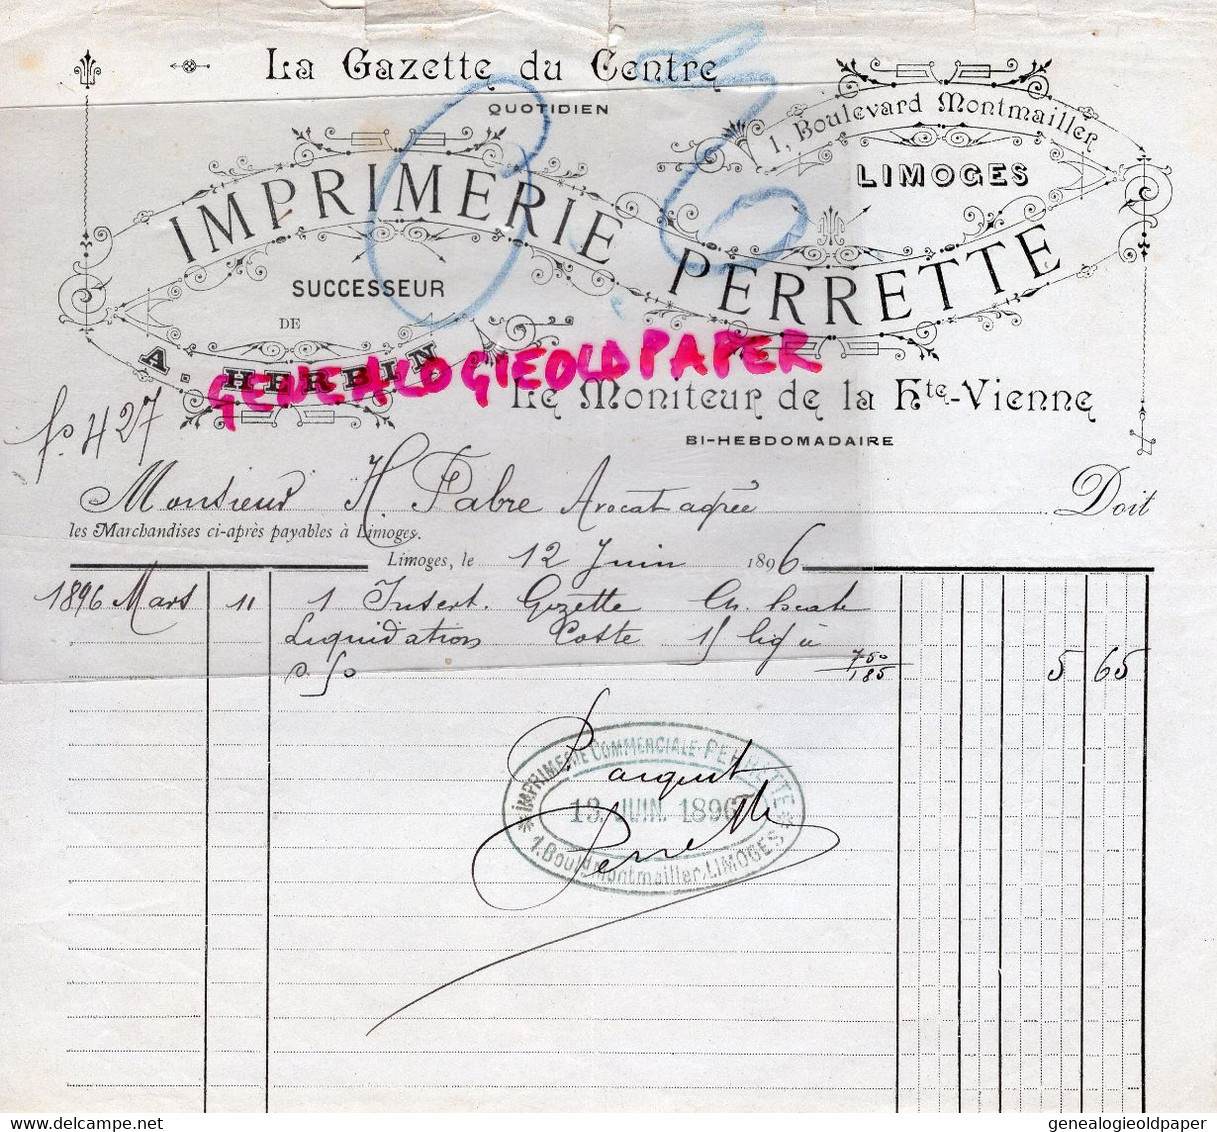 La Gazette du Centre
QUOTIDIEN
1, Boulevard Montmailler
LIMOGES
IMPRIMERIE PERRETTE
SUCCESSEUR
DE
A. HERBIN
GENEALOGIEOLDPAPER
Le Moniteur de la Hte-Vienne
BI-HEBDOMADAIRE
fo. 427
Monsieur H. Fabre Avocat agrée Doit
les Marchandises ci-après payables à Limoges.
Limoges, le 12 Juin 1896
1896 Mars 11 1 Insert. Gazette
Liquidations Coste
750
185 5 65
IMPRIMERIE COMMERCIALE PERRETTE
Pr acquit
13. JUIN. 1896
Perrette
1. Bould Montmailler. LIMOGES
delcampe.net
genealogieoldpaper